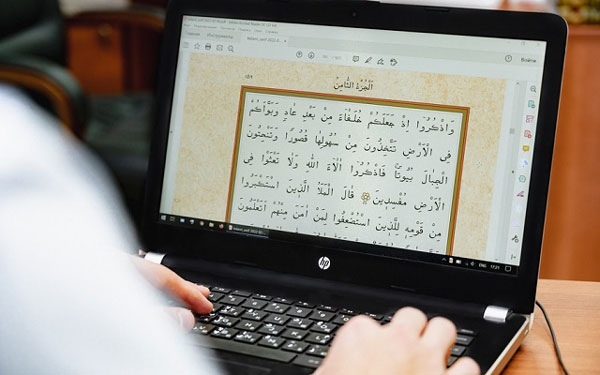 Главная Инструменты
Войти
اَلْجُزْءُ الثَّامِنُ
وَاذْكُرُوا إِذْ جَعَلَكُمْ خُلَفَاءَ مِنْ بَعْدِ عَادٍ وَبَوَّأَكُمْ
فِي الْأَرْضِ تَتَّخِذُونَ مِنْ سُهُولِهَا قُصُورًا وَتَنْحِتُونَ
الْجِبَالَ بُيُوتًا فَاذْكُرُوا آلَاءَ اللَّهِ وَلَا تَعْثَوْا فِي
الْأَرْضِ مُفْسِدِينَ قَالَ الْمَلَأُ الَّذِينَ اسْتَكْبَرُوا
مِنْ قَوْمِهِ لِلَّذِينَ اسْتُضْعِفُوا لِمَنْ آمَنَ مِنْهُمْ أَتَعْلَمُونَ
ENG 17:21
hp